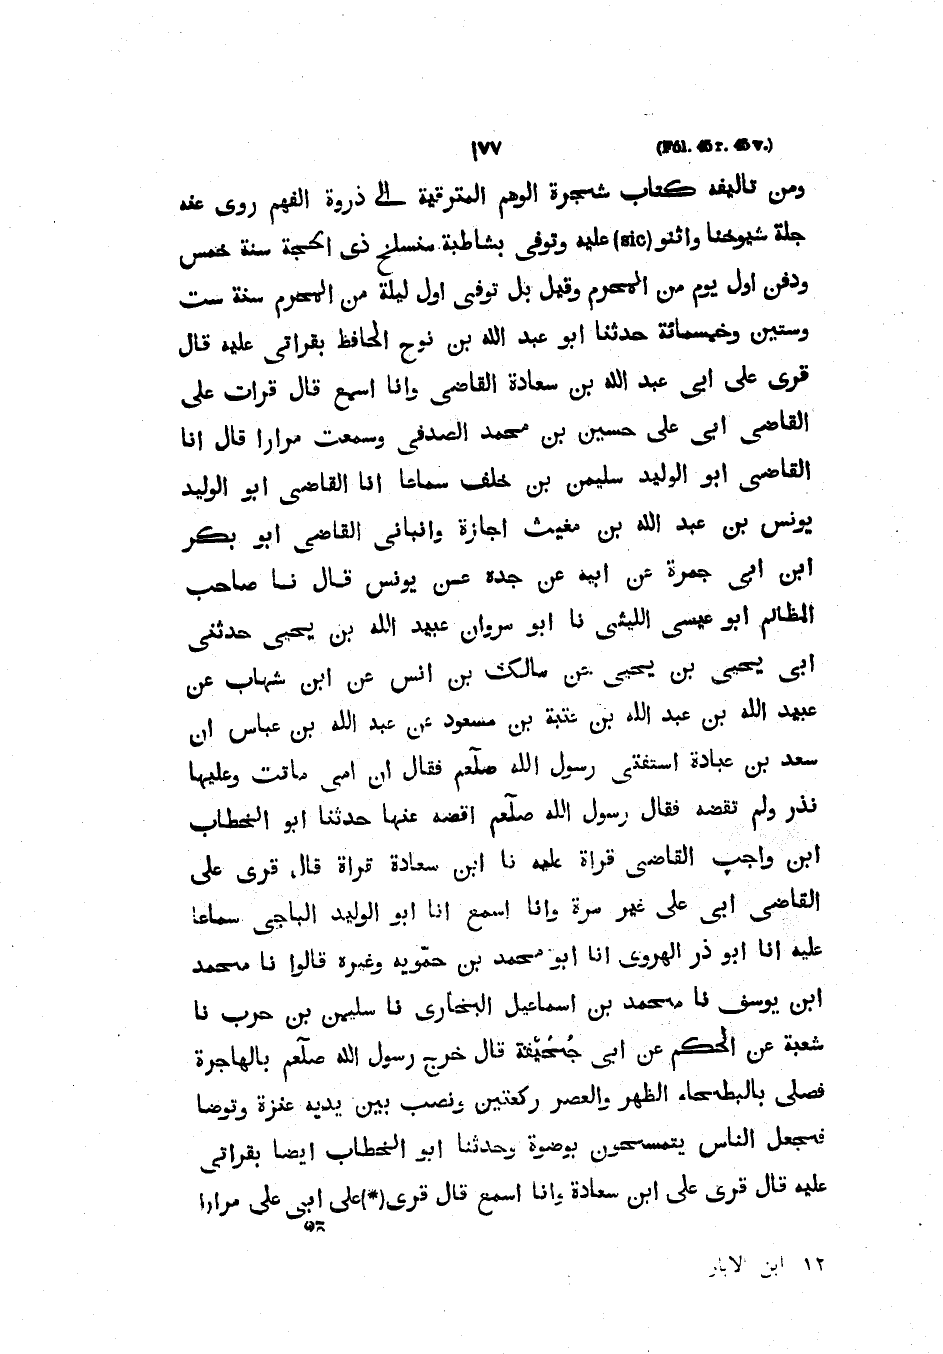 (Fól. 45 r. 45 v.) ١٧٧
ومن تاليفه كتاب شجرة الوهم المترقية الى ذروة الفهم روى عنه
جلة شيوخنا واثنو (sic) عليه وتوفى بشاطبة منسلخ ذى الحجة سنة خمس
ودفن اول يوم من المحرم وقيل بل توفى اول ليلة من المحرم سنة ست
وستين وخمسمائة حدثنا ابو عبد الله بن نوح الحافظ بقراتى عليه قال
قرى على ابى عبد الله بن سعادة القاضى وانا اسمع قال قرات على
القاضى ابى على حسين بن محمد الصدفى وسمعت مرارا قال انا
القاضى ابو الوليد سليمن بن خلف سماعا انا القاضى ابو الوليد
يونس بن عبد الله بن مغيث اجازة وانبانى القاضى ابو بكر
ابن ابى جمرة عن ابيه عن جده عن يونس قال نا صاحب
المظالم ابو عيسى الليثى نا ابو مروان عبيد الله بن يحيى حدثنى
ابى يحيى بن يحيى عن مالك بن انس عن ابن شهاب عن
عبيد الله بن عبد الله بن عتبة بن مسعود عن عبد الله بن عباس ان
سعد بن عبادة استفتى رسول الله صلّعم فقال ان امى ماتت وعليها
نذر ولم تقضه فقال رسول الله صلّعم اقضه عنها حدثنا ابو الخطاب
ابن واجب القاضى قراة عليه نا ابن سعادة قراة قال قرى على
القاضى ابى على غير مرة وانا اسمع انا ابو الوليد الباجى سماعا
عليه انا ابو ذر الهروى انا ابو محمد بن حمّويه وغيره قالوا نا محمد
ابن يوسف نا محمد بن اسماعيل البخارى نا سليمن بن حرب نا
شعبة عن الحكم عن ابى جُحَيْفة قال خرج رسول الله صلّعم بالهاجرة
فصلى بالبطحاء الظهر والعصر ركعتين ونصب بين يديه عنزة وتوضا
فجعل الناس يتمسحون بوضوة وحدثنا ابو الخطاب ايضا بقراتى
عليه قال قرى على ابن سعادة وانا اسمع قال قرى (*) على ابى على مرارا
١٢ ابن الابار